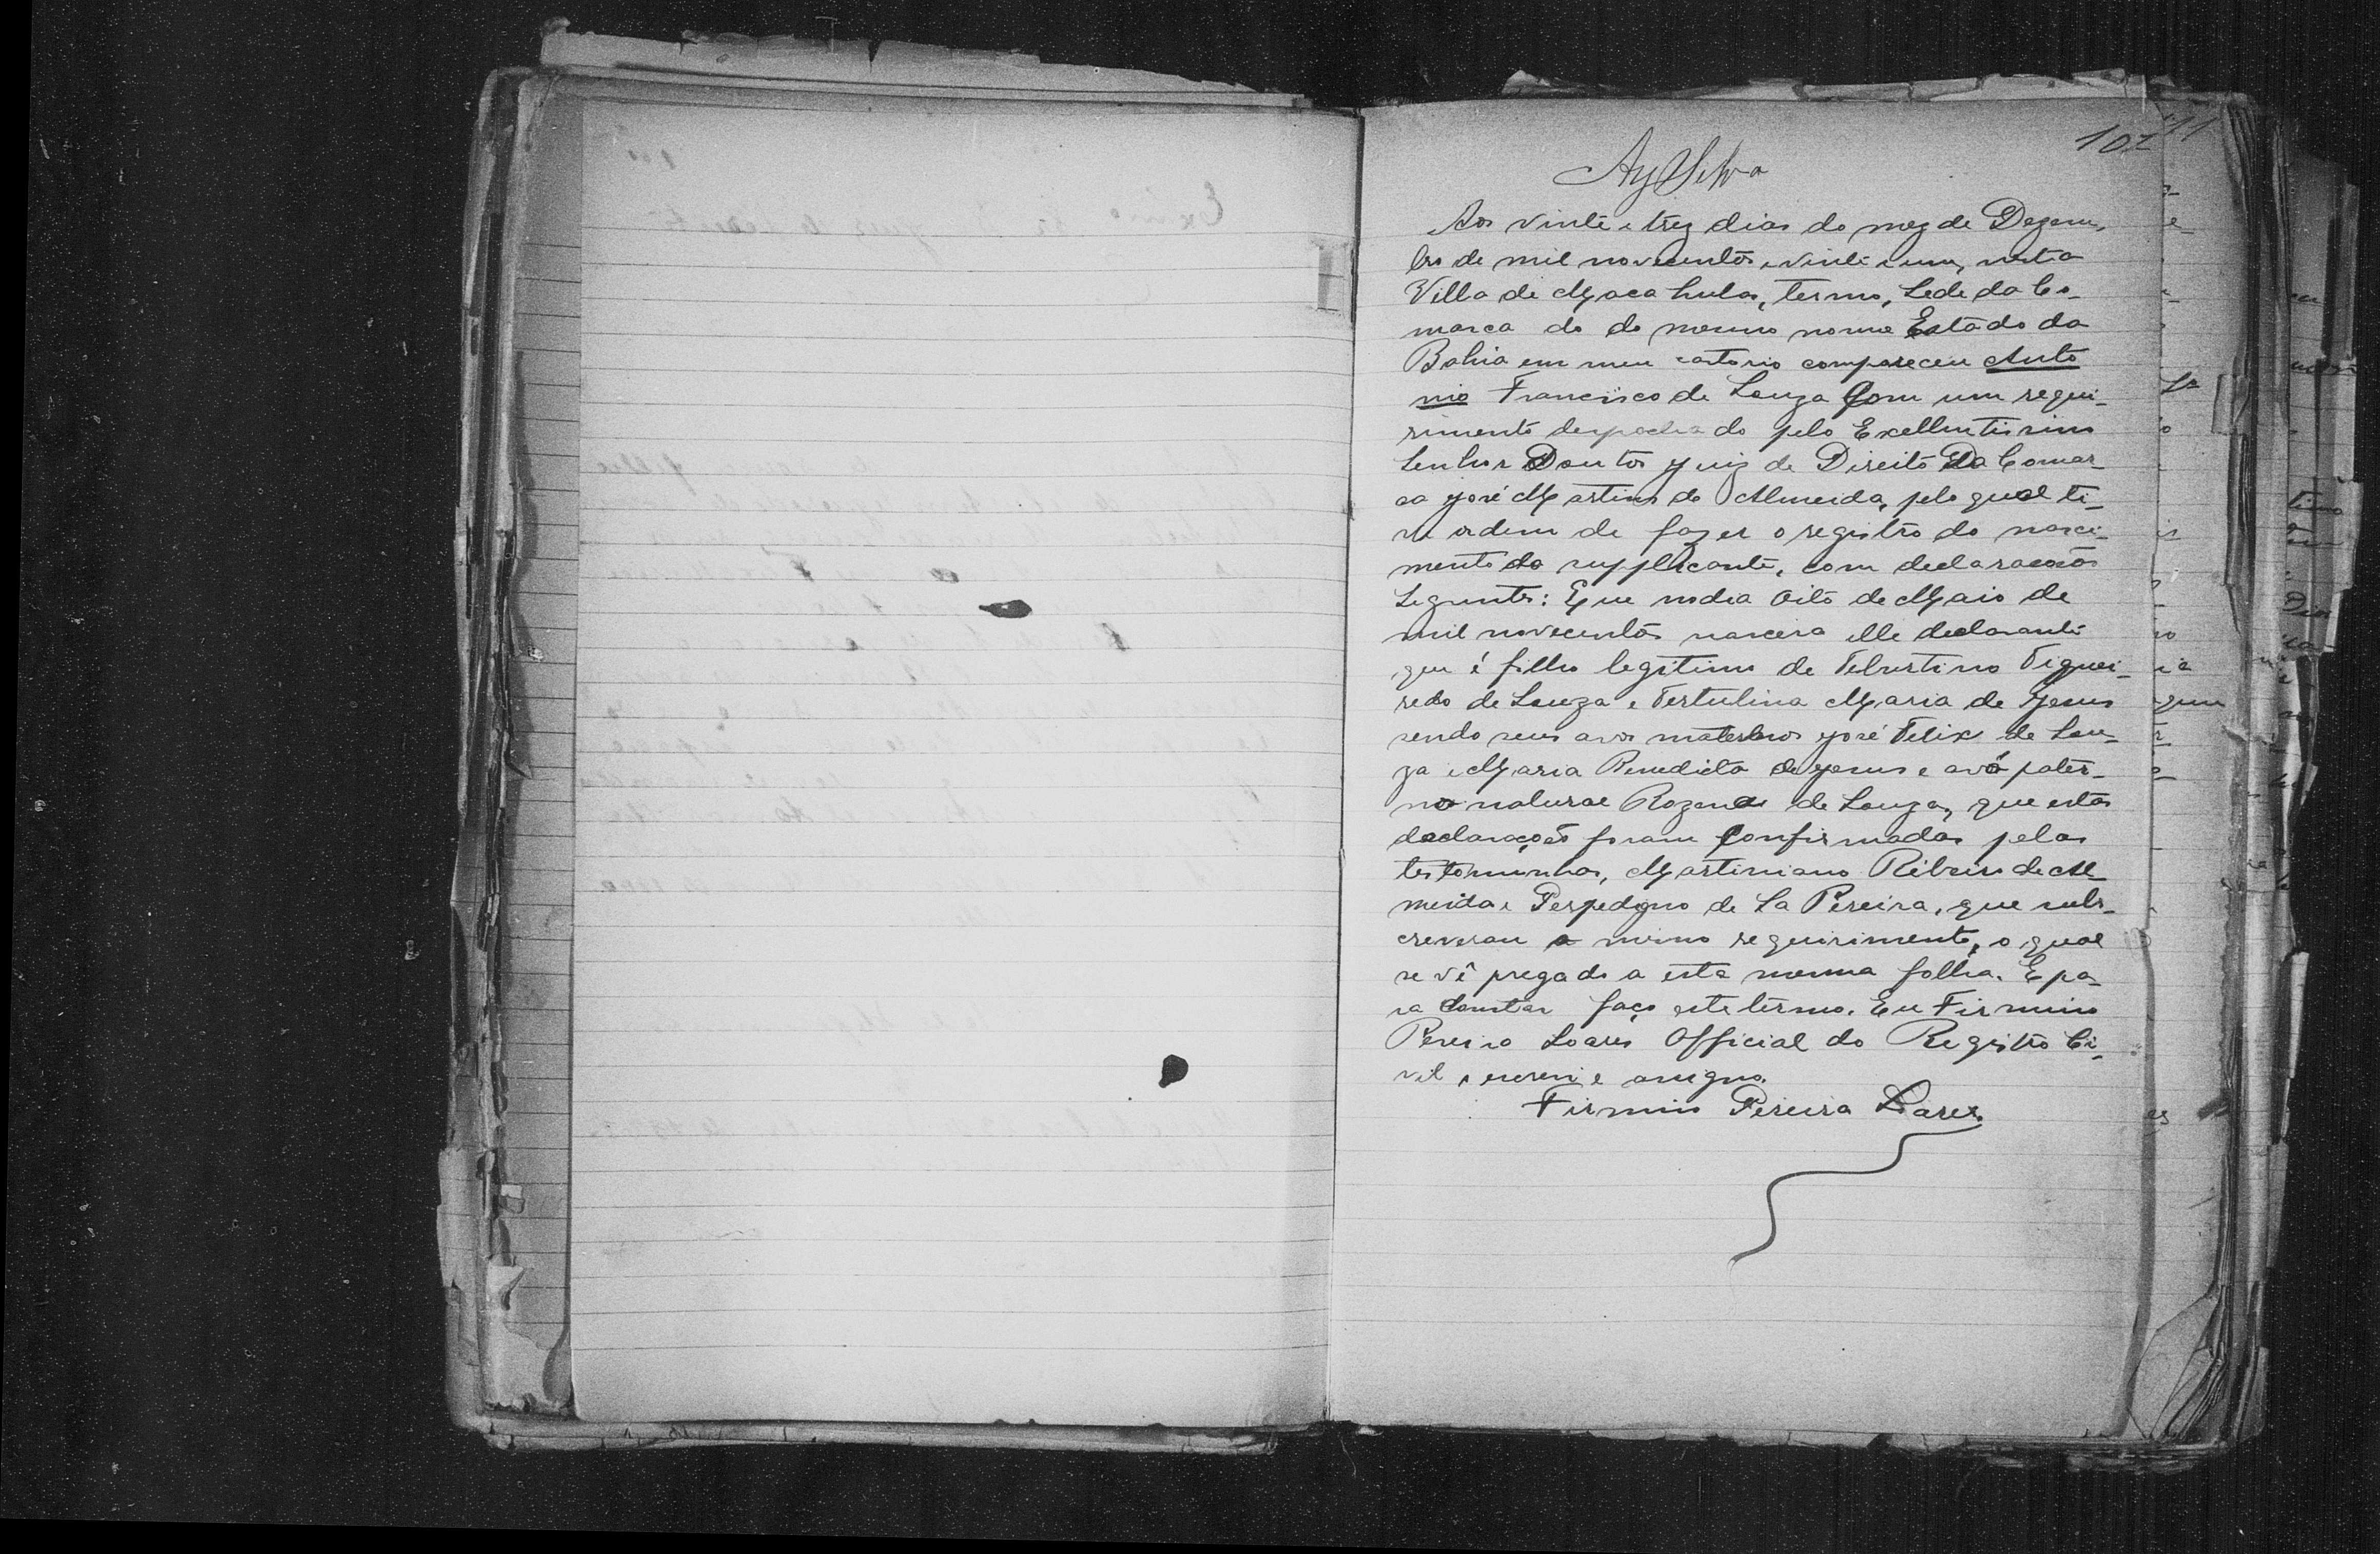 102
AySilva
Aos vinte e trez dias do mez de Dezem,
bro de mil novecentos e vinte e um, nesta
Villa de Macahubas, termo, Sede da Co_
marca do do mesmo nome Estado da
Bahia em meu cartorio compareceu Anto
nio Francisco de Souza Com um requi_
rimento despachado pelo Exellentissimo
Senhor Doutor Juiz de Direito Da Comar_
ca José Martins de Almeida, pelo qual ti_
ve ordem de fazer o registro do nasci_
mento do supplicante, com declarações
Seguntes: Que no dia Oito de Maio de
mil novecentos nascera elle declarante
que é filho legitimo de Teburtino Figuei_
redo de Souza e Tertulina Maria de Jesus
sendo seus avos maternos José Felix de Sou_
za e Maria Benedicta de Jesus e avó pater_
na natural Rozenda de Souza, que estas
declarações foram Confirmadas pelas
testemunhas, Martiniano Ribeiro de Al_
meida e Perpedigno de Sa Pereira, que subs_
creveram o mesmo requirimento, o qual
se vê pregado a esta mesma folha. E pa_
ra Constar faço este termo. Eu Firmino
Pereira Soares Official do Registro Ci_
vil, escrevi e assigno.
Firmino Pereira Soares.